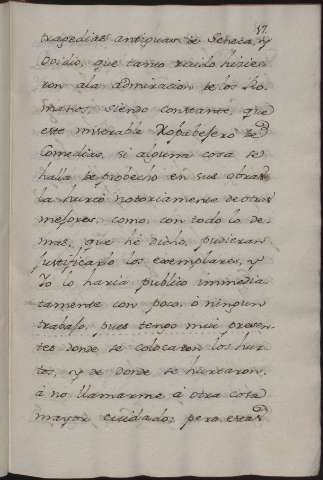 17.
tragedias antiguas de Seneca, y
Ovidio, que tanto ruido hicie-
ron ala admiracion de los Ro-
manos, siendo constante, que
este miserable
Comedias, si alguna cosa se
halla de probecho en sus obras
la hurtó notoriamente de otras
mejores, como, con todo lo de-
mas, que hé dicho, pudieran
justificarlo los exemplares, y
Yo lo haria publico immedia-
tamente con poco, ó ningun
trabajo, pues tengo mui presen-
tes donde se colocaron los hur-
tos, y de donde se hurtaron,
á no llamarme á otra cosa
mayor cuidado; pero estas